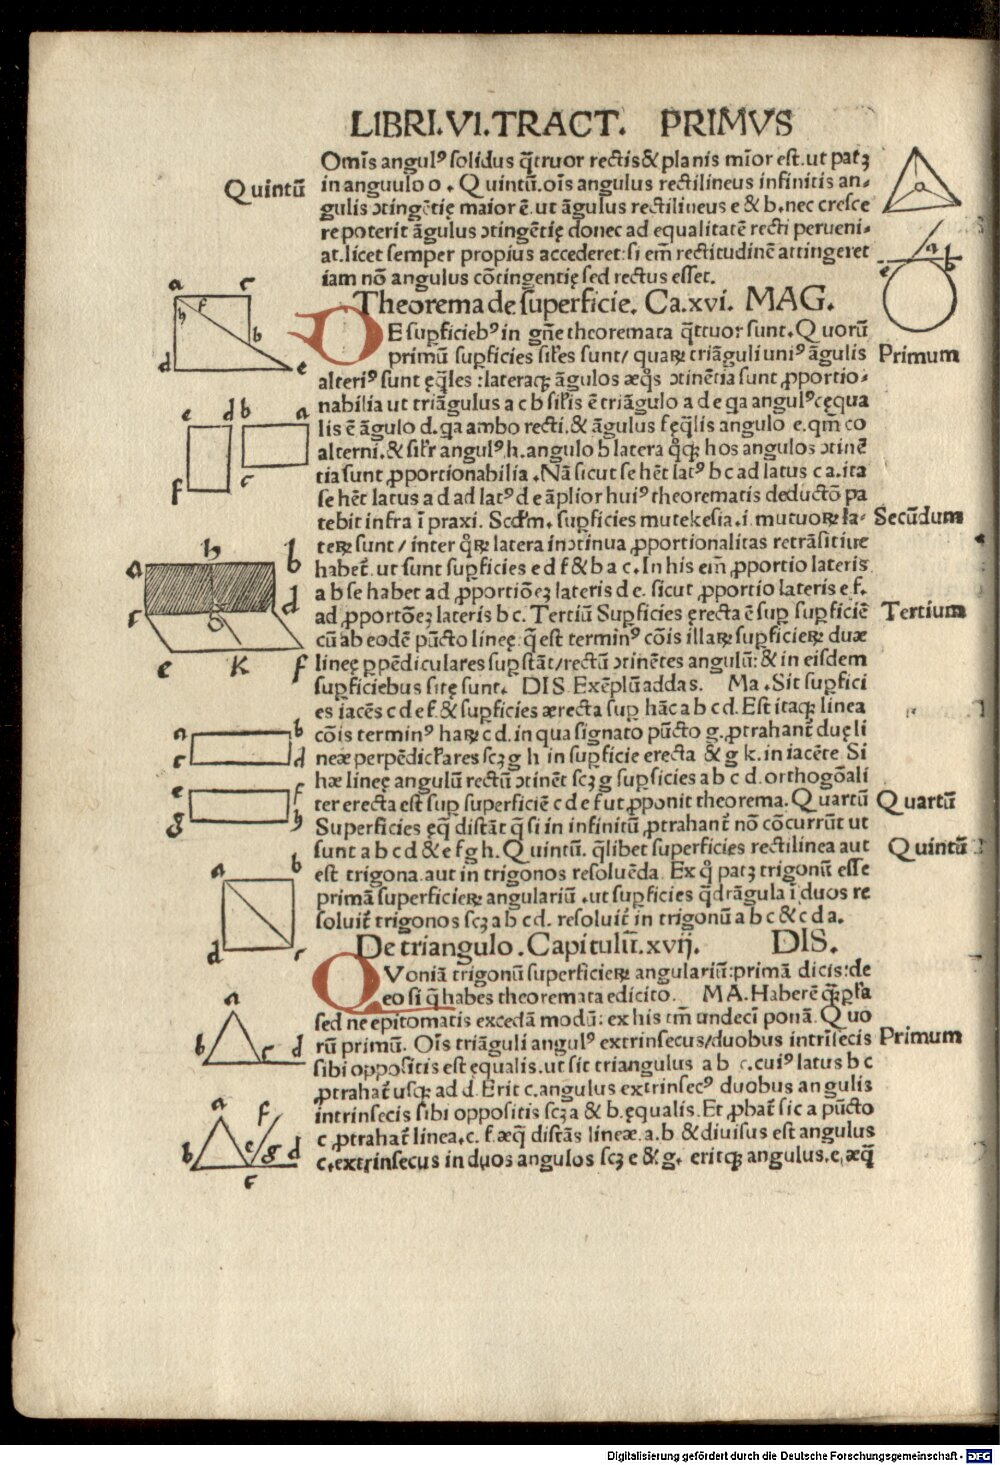 LIBRI.VI.TRACT. PRIMVS
Omĩs angulꝰ solidus q̃tuor rectis & planis mĩor est.ut patꝫ
Quintũ
in anguulo o . Quintũ.oĩs angulus rectilineus infinitis an⸗
gulis ↄtingẽtię maior ẽ.ut ãgulus rectilineus e & b.nec cresce
re poterit ãgulus ↄtingẽtię donec ad equalitatẽ recti perueni⸗
at.licet semper propius accederet:si em̃ rectitudinẽ attingeret
iam nõ angulus cõtingentię sed rectus esset.
Theorema de superficie. Ca.xvi. MAG.
DE supficiebꝰ in gñe theoremata q̃tuor sunt.Quorũ
primũ supficies siłes sunt/ quaꝝ triãguli uniꝰ ãgulis
Primum
alteriꝰ sunt ęq̃les :lateraqꝫ ãgulos æq̊s ↄtinẽtia sunt ꝓportio⸗
nabilia ut triãgulus a c b siłis ẽ triãgulo a d e qa angulꝰ c ęqua
lis ẽ ãgulo d.qa ambo recti.& ãgulus f ęq̃lis angulo e.qm̃ co
alterni.& siłr angulꝰ.h.angulo b latera q̊qꝫ hos angulos ↄtinẽ
tia sunt ꝓportionabilia .Nã sicut se hẽt latꝰ b c ad latus c a.ita
se hẽt latus a d ad latꝰ d e ãplior huiꝰ theorematis deductõ pa
tebit infra ĩ praxi. Scd̃m. supficies mutekesia.i.mutuoꝝ la⸗
Secũdum
teꝝ sunt / inter q̊ꝝ latera inↄtinua ꝓportionalitas retrãsitiue
habet̃.ut sunt supficies e d f & b a c.In his em̃ ꝓportio lateris
a b se habet ad ꝓportiõeꝫ lateris d e. sicut ꝓportio lateris e f.
ad ꝓportõeꝫ lateris b c. Tertiũ Supficies ęrecta ẽ sup supficiẽ
Tertium
cũ ab eodẽ pũcto lineę q̃ est terminꝰ cõis illaꝝ supficieꝝ duæ
lineę ppẽdiculares sup stãt/rectũ ↄtinẽtes angulũ:& in eisdem
supficiebus sitę sunt. DIS.Exẽplũ addas. Ma.Sit supfici
es iacẽs c d e f.& supficies ærecta sup hãc a b c d.Est itaqꝫ linea
cõis terminꝰ haꝝ c d.in qua signato pũcto g.ꝓtrahant̃ duę li
neæ perpẽdicłares scꝫ g h in supficie erecta & g k.in iacẽte.Si
hæ lineę angulũ rectũ ↄtinẽt scꝫ g supficies a b c d.orthogõali
ter erecta est sup superficiẽ c d e f ut ꝓponit theorema.Quartũ
Quartũ
Superficies ęq̃ distãt q̃ si in infinitũ ꝓtrahant̃ nõ cõcurrũt ut
sunt a b c d & e f g h.Quintũ. q̃libet superficies rectilinea aut
Quintũ
est trigona.aut in trigonos resoluẽda.Ex q̊ patꝫ trigonũ esse
primã superficieꝝ angulariũ .ut supficies q̃drãgula ĩ duos re
soluit̃ trigonos scꝫ a b c d. resoluit̃ in trigonũ a b c & c d a.
De triangulo.Capitulũ.xvij. DIS.
QVoniã trigonũ superficieꝝ angulariũ:primã dicis:de
eo si q̃ habes theoremata edicito. MA.Haberẽ q̃ꝫ pła
sed ne epitomatis excedã modũ: ex his tm̃ undecĩ ponã.Quo
rũ primũ. Oĩs triãguli angulꝰ extrinsecus/duobus intrĩsecis
Primum
sibi oppositis est ęqualis.ut sit triangulus a b c.cuiꝰ latus b c
ꝓtrahat̃ usqꝫ ad d.Erit c.angulus extrinsecꝰ duobus angulis
intrinsecis sibi oppositis scꝫ a & b.ęqualis.Et ꝓbat̃ sic a pũcto
c ꝓtrahat̃ linea.c.f.æq̃ distãs lineæ.a.b & diuisus est angulus
c.extrinsecus in duos angulos scꝫ e & g. eritqꝫ angulus.e.æq̃
a e b
a c f h b d e
e d b a f c
a h b c g d e k f
a b c d
e f g h
a b d c
a b c d
a f b e g d c
Digitalisierung gefördert durch die Deutsche Forschungsgemeinschaft - DFG